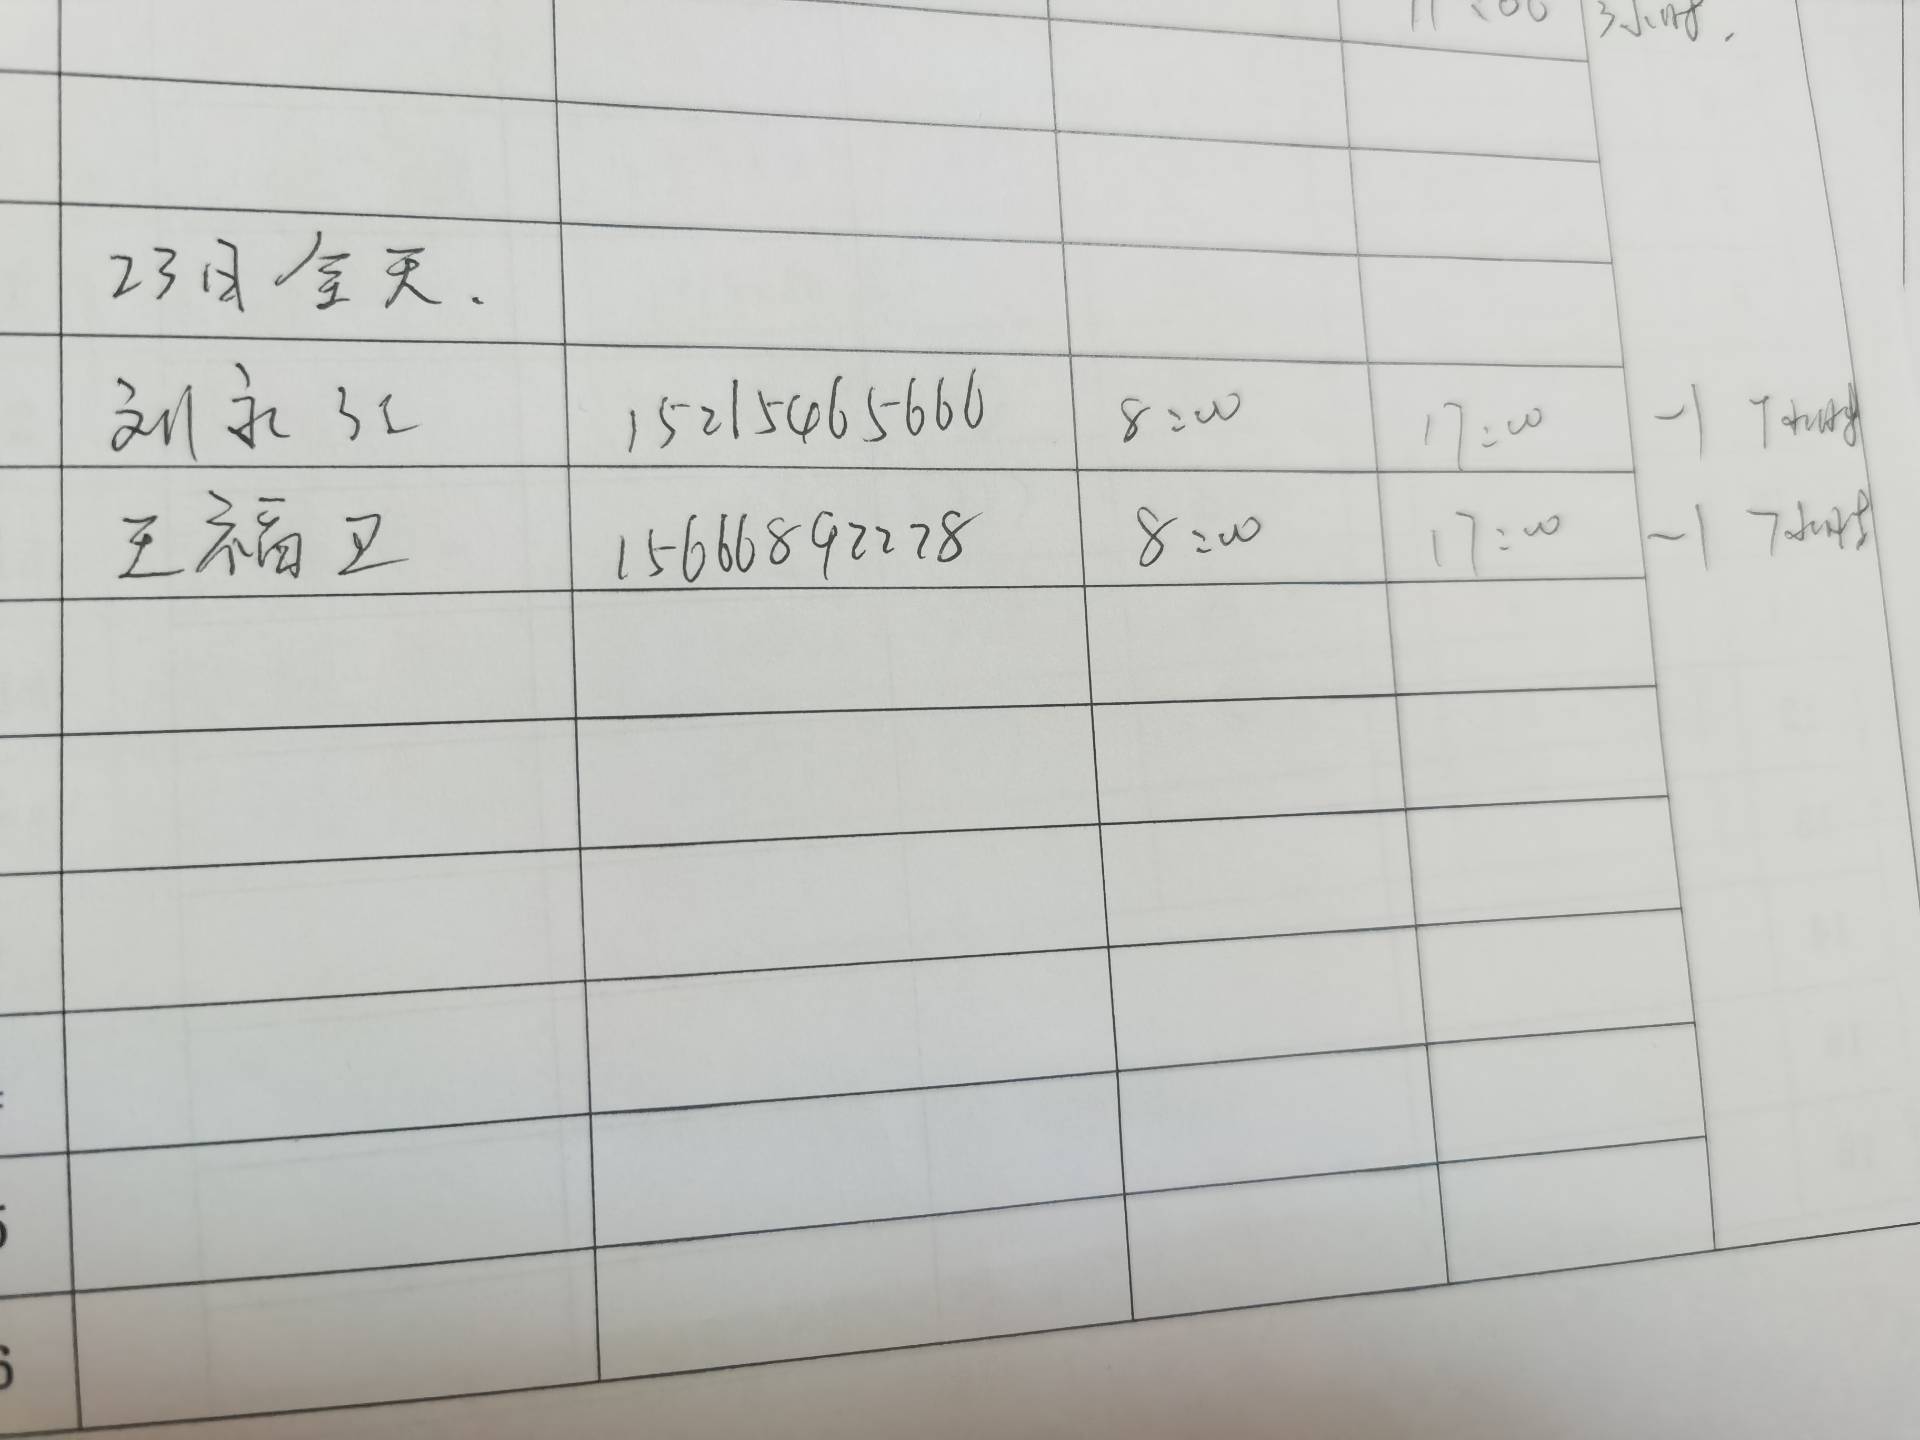 11:00 3小时.
23日全天.
刘永江 15215465666 8:00 17:00 -1 7小时
王福卫 15666892228 8:00 17:00 -1 7小时
5
6